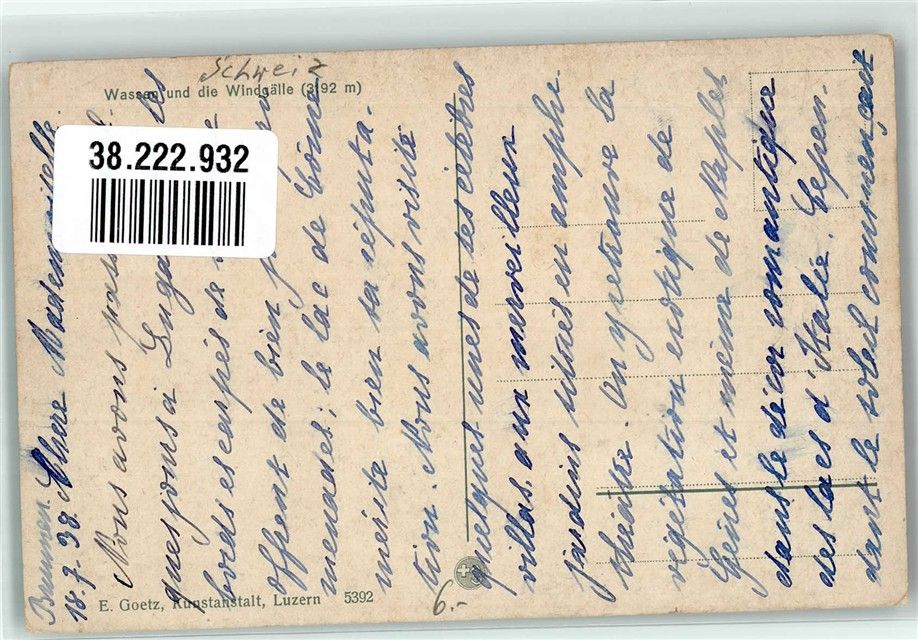 Schweiz
Wassen und die Windgälle (3192 m)
38.222.932
Brunnen.
18-7-38. Chère Mademoiselle.
Nous avons passé
ques jours à Lugano les
bords escarpés de
offrent de bien
menades; le lac de Côme
mérite bien sa réputa-
tion. Nous avons visité
quelques unes de ses cèlèbres
villas, aux merveilleux
jardins situés en amphi-
théâtre. On y retrouve la
végétation exotique de
Gênes et même de Naples
dans le décor romantique
des lacs d'Italie. Cepen-
dant le soleil commençait
E. Goetz, Kunstanstalt, Luzern 5392
6.-